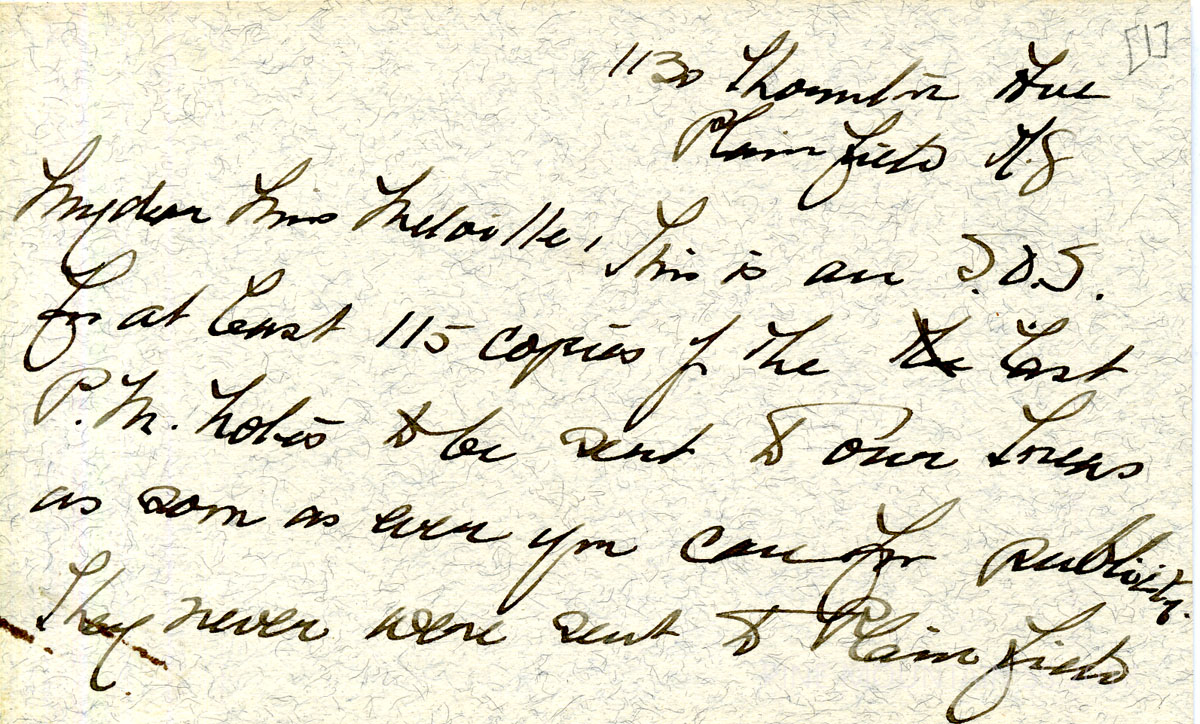 [1]
1130 Thornton Ave
Plainfield N.J
My dear Miss Melville, This is an S.O.S.
for at least 115 copies of the the last
P.M. Notes to be sent to our Treas
as soon as ever you can for publicity.
They never were sent to Plainfield